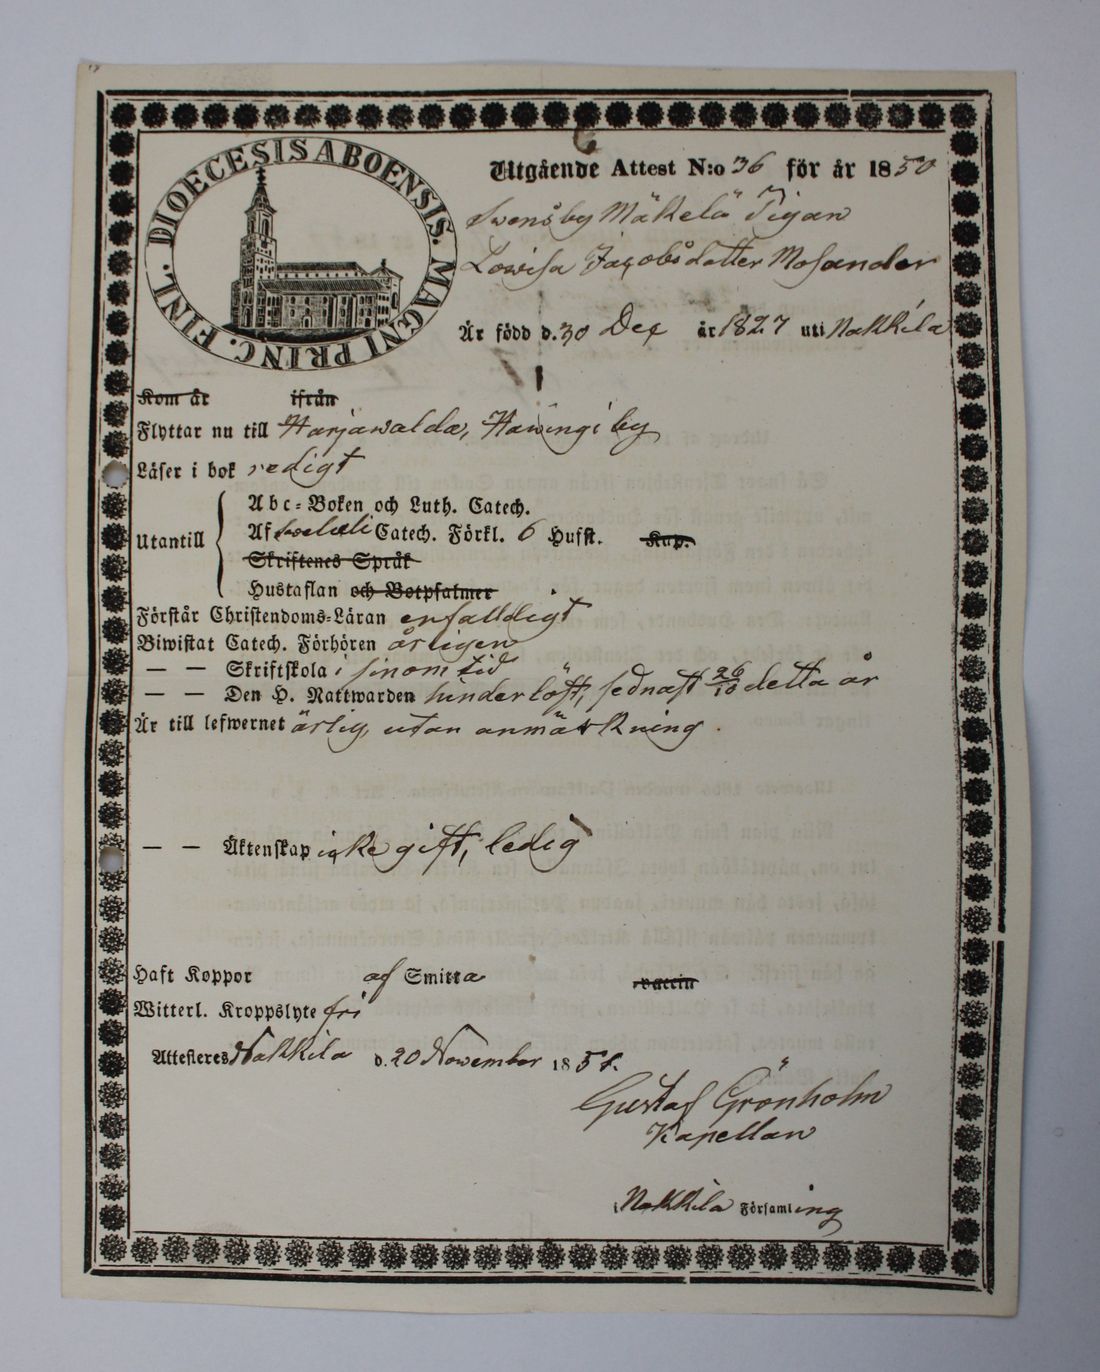 DIOECESIS ABOENSIS. MAGNI PRINC. FINL.
Utgående Attest N:o 36 för år 1850
Swensby Mäkelä Pigan
Lowisa Jacobsdotter Mosander
Är född d. 30 Dec år 1827 uti Nakkila
Kom år ifrån
Flyttar nu till Harjawalda, Hawingi by
Läser i bok redigt
Utantill
Abc-Boken och Luth. Catech.
Af Catech. Förkl. 6 Hufst. Kap.
Skriftenes Språk
Hustaflan och Botpsalmer
Förstår Christendoms-Läran enfalldigt
Biwistat Catech. Förhören årligen
— — Skriftskola i sinom tid
— — Den H. Nattwarden hinderlöst, sednast 26/10 detta år
Är till lefwernet ärlig, utan anmärkning.
— — Äktenskap icke gift, ledig
Haft Koppor af Smitta vaccin
Witterl. Kroppslyte fri
Attesteres Nakkila d. 20 November 185
Gustaf Grönholm
Kapellan
i Nakkila Församling